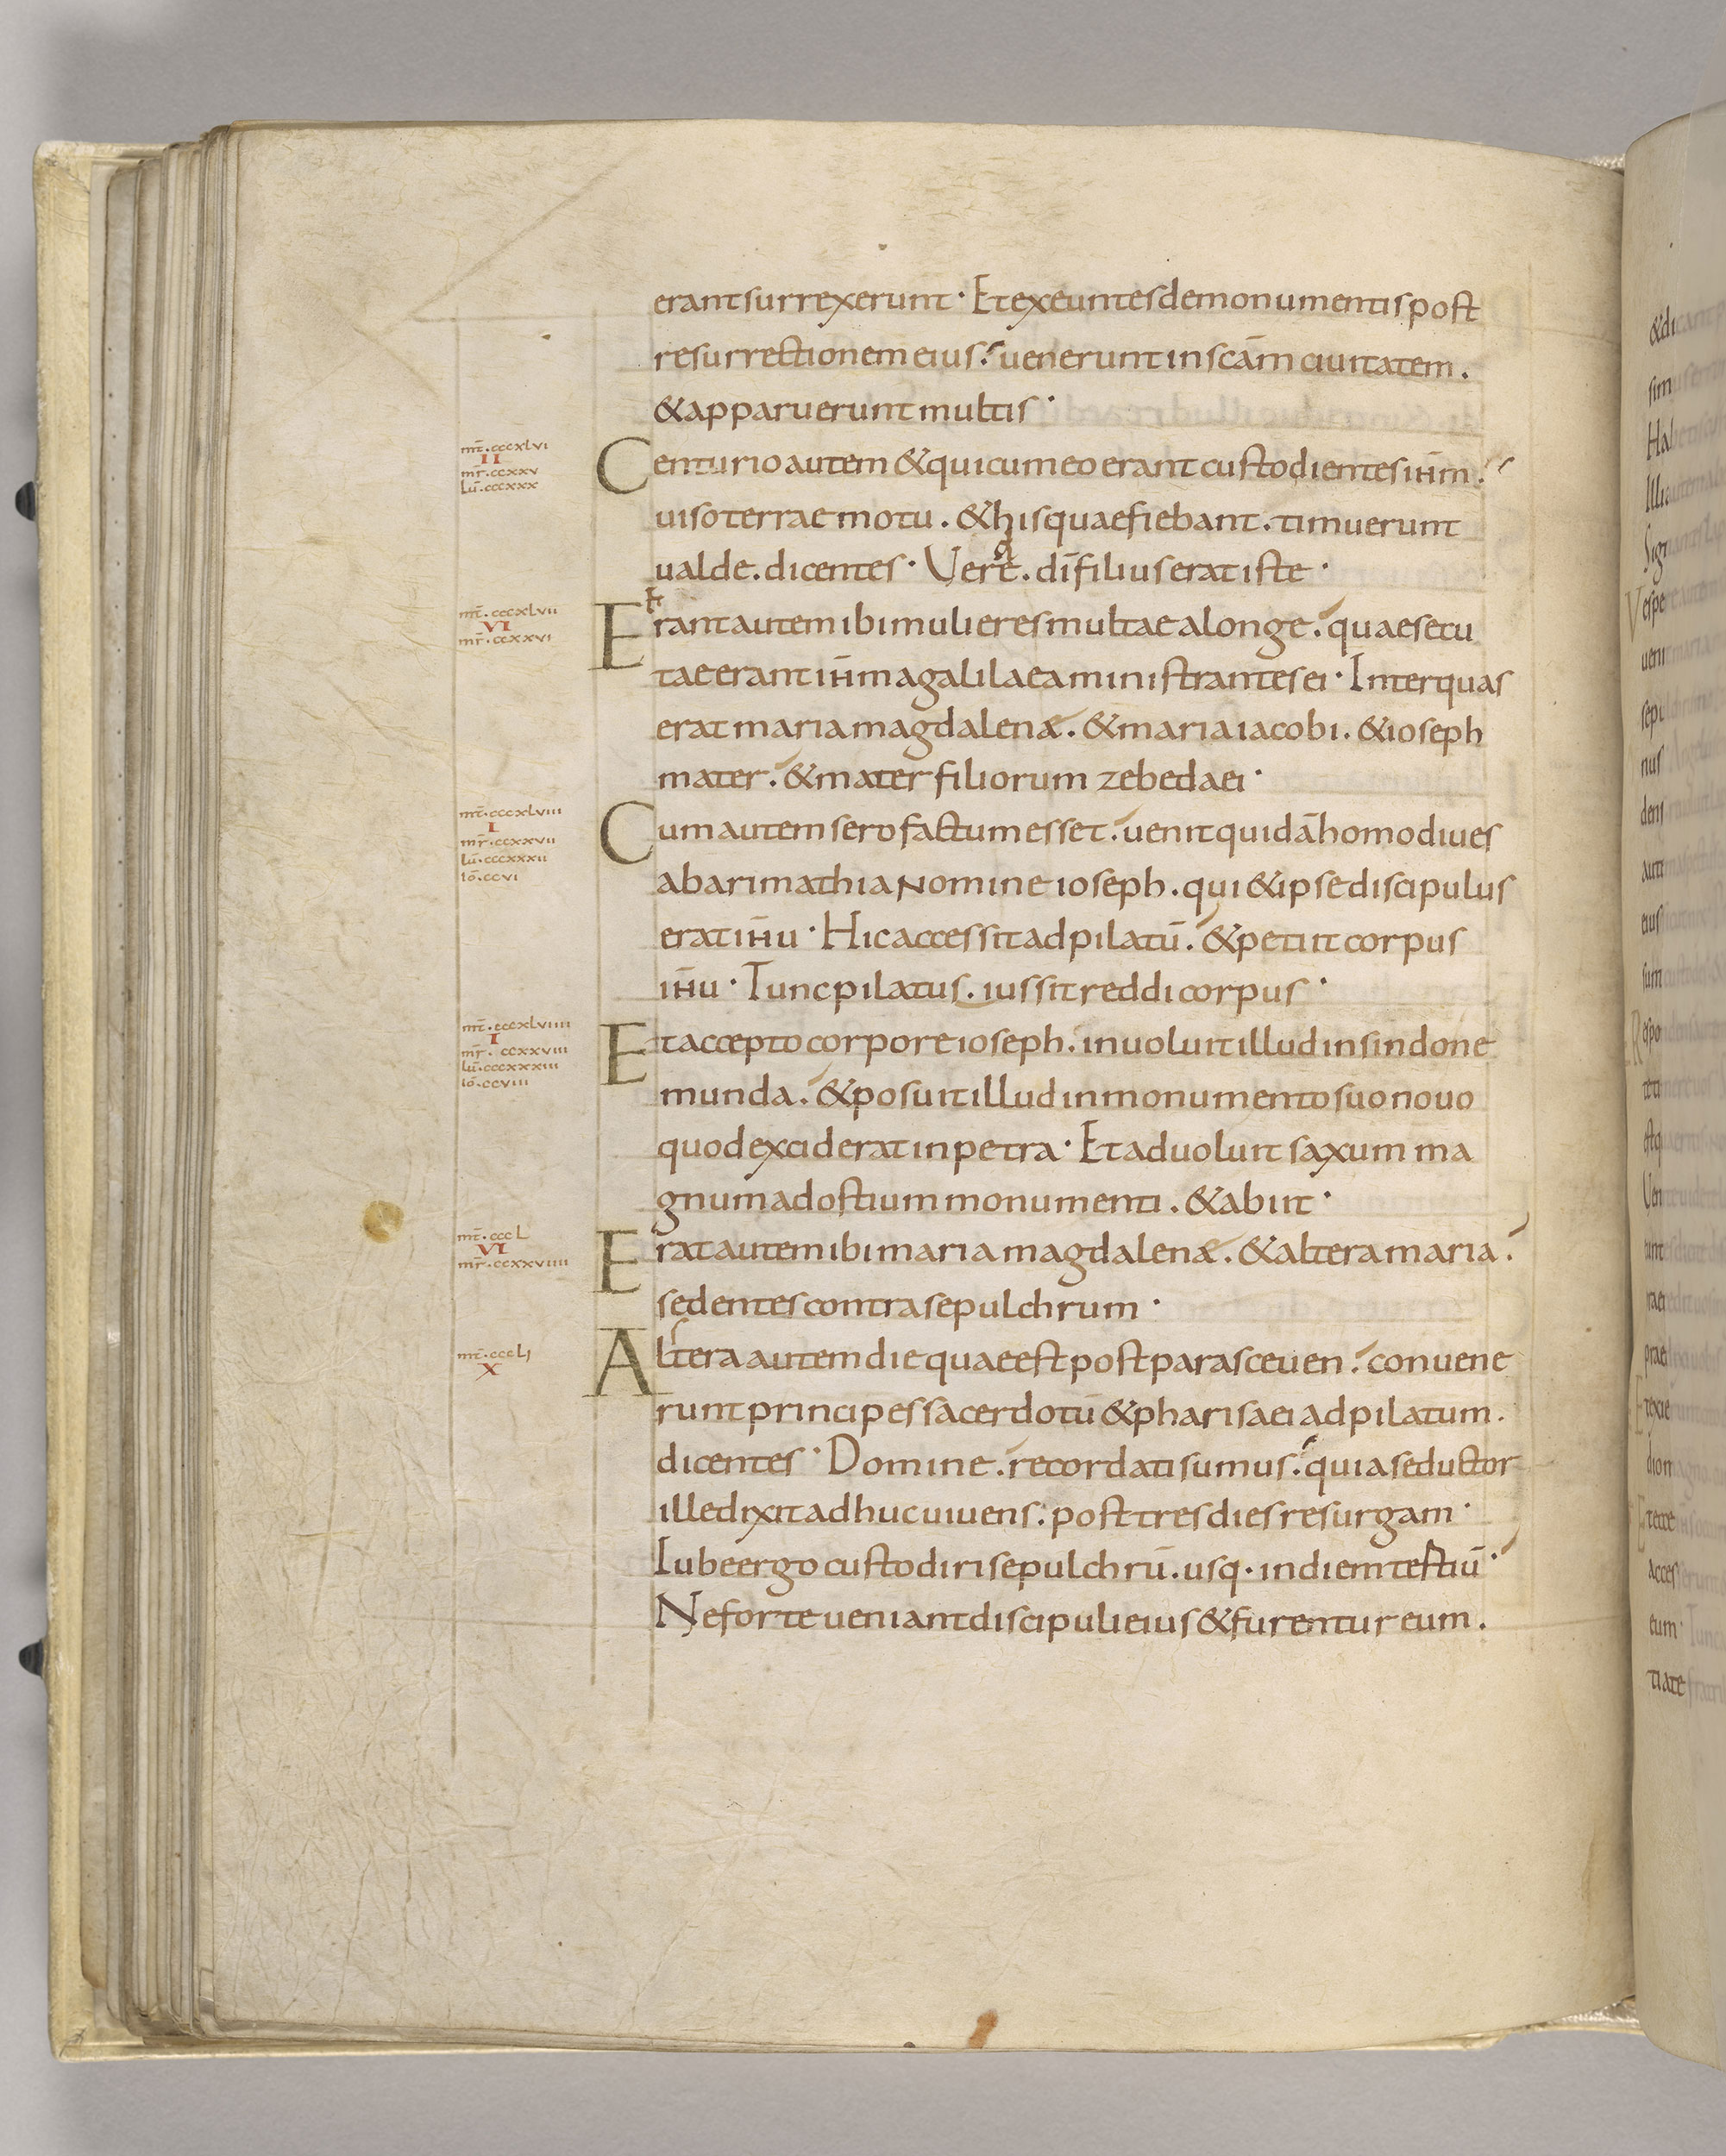 erant surrexerunt · Et exeuntes de monumentis post
resurrectionem eius . uenerunt in scām ciuitatem .
& apparuerunt multis ·
mt̄ . cccxlvi
II
mr̄ . ccxxv
lū . cccxxx
Centurio autem & qui cum eo erant custodientes ih̄m .
uiso terrae motu . & his quae fiebant . timuerunt
ualde . dicentes · Vere . dī filius erat iste ·
mt̄ . cccxlvii
VI
mr̄ . ccxxvi
Erant autem ibi mulieres multae a longe . quae secu
tae erant ih̄m a galilaea ministrantes ei · Inter quas
erat maria magdalenæ . & maria iacobi . & ioseph
mater . & mater filiorum zebedaei ·
mt̄ . cccxlviii
I
mr̄ . ccxxvii
lū . cccxxxii
iō . ccvi
Cum autem sero factum esset . uenit quidā homo diues
ab arimathia nomine ioseph . qui & ipse discipulus
erat ih̄u · Hic accessit ad pilatū . & petiit corpus
ih̄u · Tunc pilatus . iussit reddi corpus ·
mt̄ . cccxlviiii
I
mr̄ . ccxxviii
lū . cccxxxiii
iō . ccviii
Et accepto corpore ioseph . inuoluit illud in sindone
munda . & posuit illud in monumento suo nouo
quod exciderat in petra · Et aduoluit saxum ma
gnum ad ostium monumenti . & abiit ·
mt̄ . cccL
VI
mr̄ . ccxxviiii
Erat autem ibi maria magdalenæ . & altera maria .
sedentes contra sepulchrum ·
mt̄ . cccLi
X
Altera autem die quae est post parasceuen . conuene
runt principes sacerdotū & pharisaei ad pilatum .
dicentes · Domine . recordati sumus . quia seductor
ille dixit adhuc uiuens : post tres dies resurgam ·
Iube ergo custodiri sepulchrū . usq · in diem tertiū ·
Ne forte ueniant discipuli eius & furentur eum .